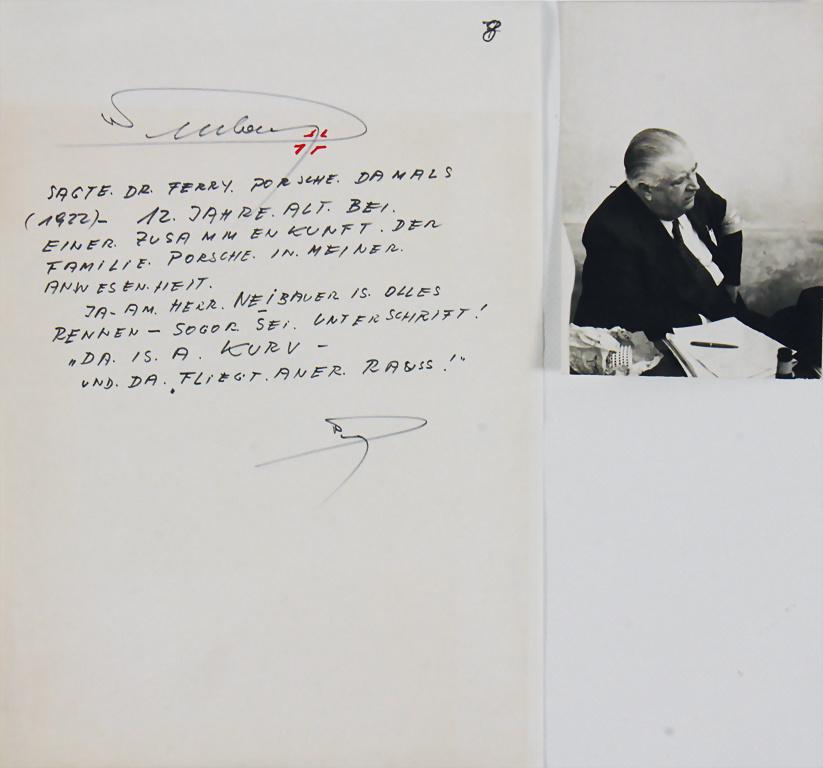 8
SAGTE. DR. FERRY. PORSCHE. DAMALS
(1922)- 12. JAHRE. ALT. BEI.
EINER. ZUSAMMENKUNFT. DER
FAMILIE. PORSCHE. IN. MEINER.
ANWESENHEIT.
JA- AM. HERR. NEIBAUER IS. OLLES
RENNEN - SOGOR SEI. UNTERSCHRIFT!
"DA. IS. A. KURV -
UND. DA. FLIEGT. ANER. RAUSS!"